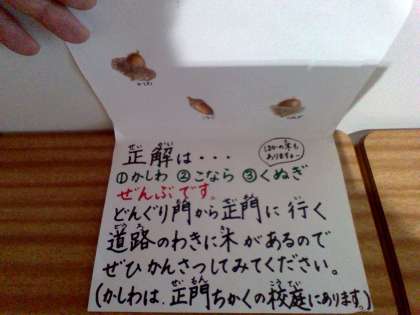 かしわ
ほかの木も
ありますよー
せいかい
正解は・・・
①かしわ ②こなら ③くぬぎ
ぜんぶです。
どんぐり門から正門に行く
道路のわきに木があるので
ぜひかんさつしてみてください。
(かしわは、正門ちかくの校庭にあります。)